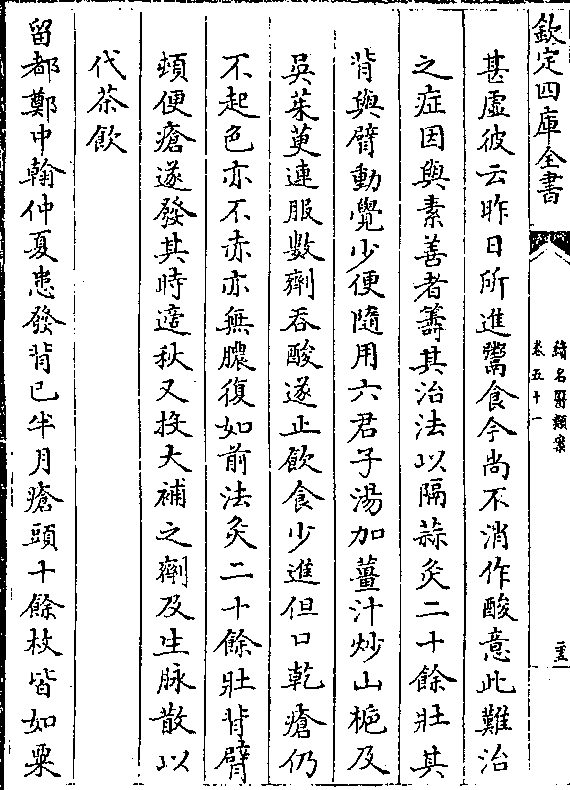 欽定四庫全書
續名醫類案
卷五十一
甚虛彼云昨日所進鬻食今尚不消作酸意此難治
之症因與素善者籌其治法以隔蒜灸二十餘壯其
背與臂動覺少便隨用六君子湯加薑汁炒山梔及
吳茱萸連服數劑吞酸遂止飲食少進但口乾瘡仍
不起色亦不赤亦無膿復如前法灸二十餘壯背臂
頓便瘡遂發其時適秋又投大補之劑及生脉散以
代茶飲
留都鄭中翰仲夏患發背已半月瘡頭十餘枚皆如粟